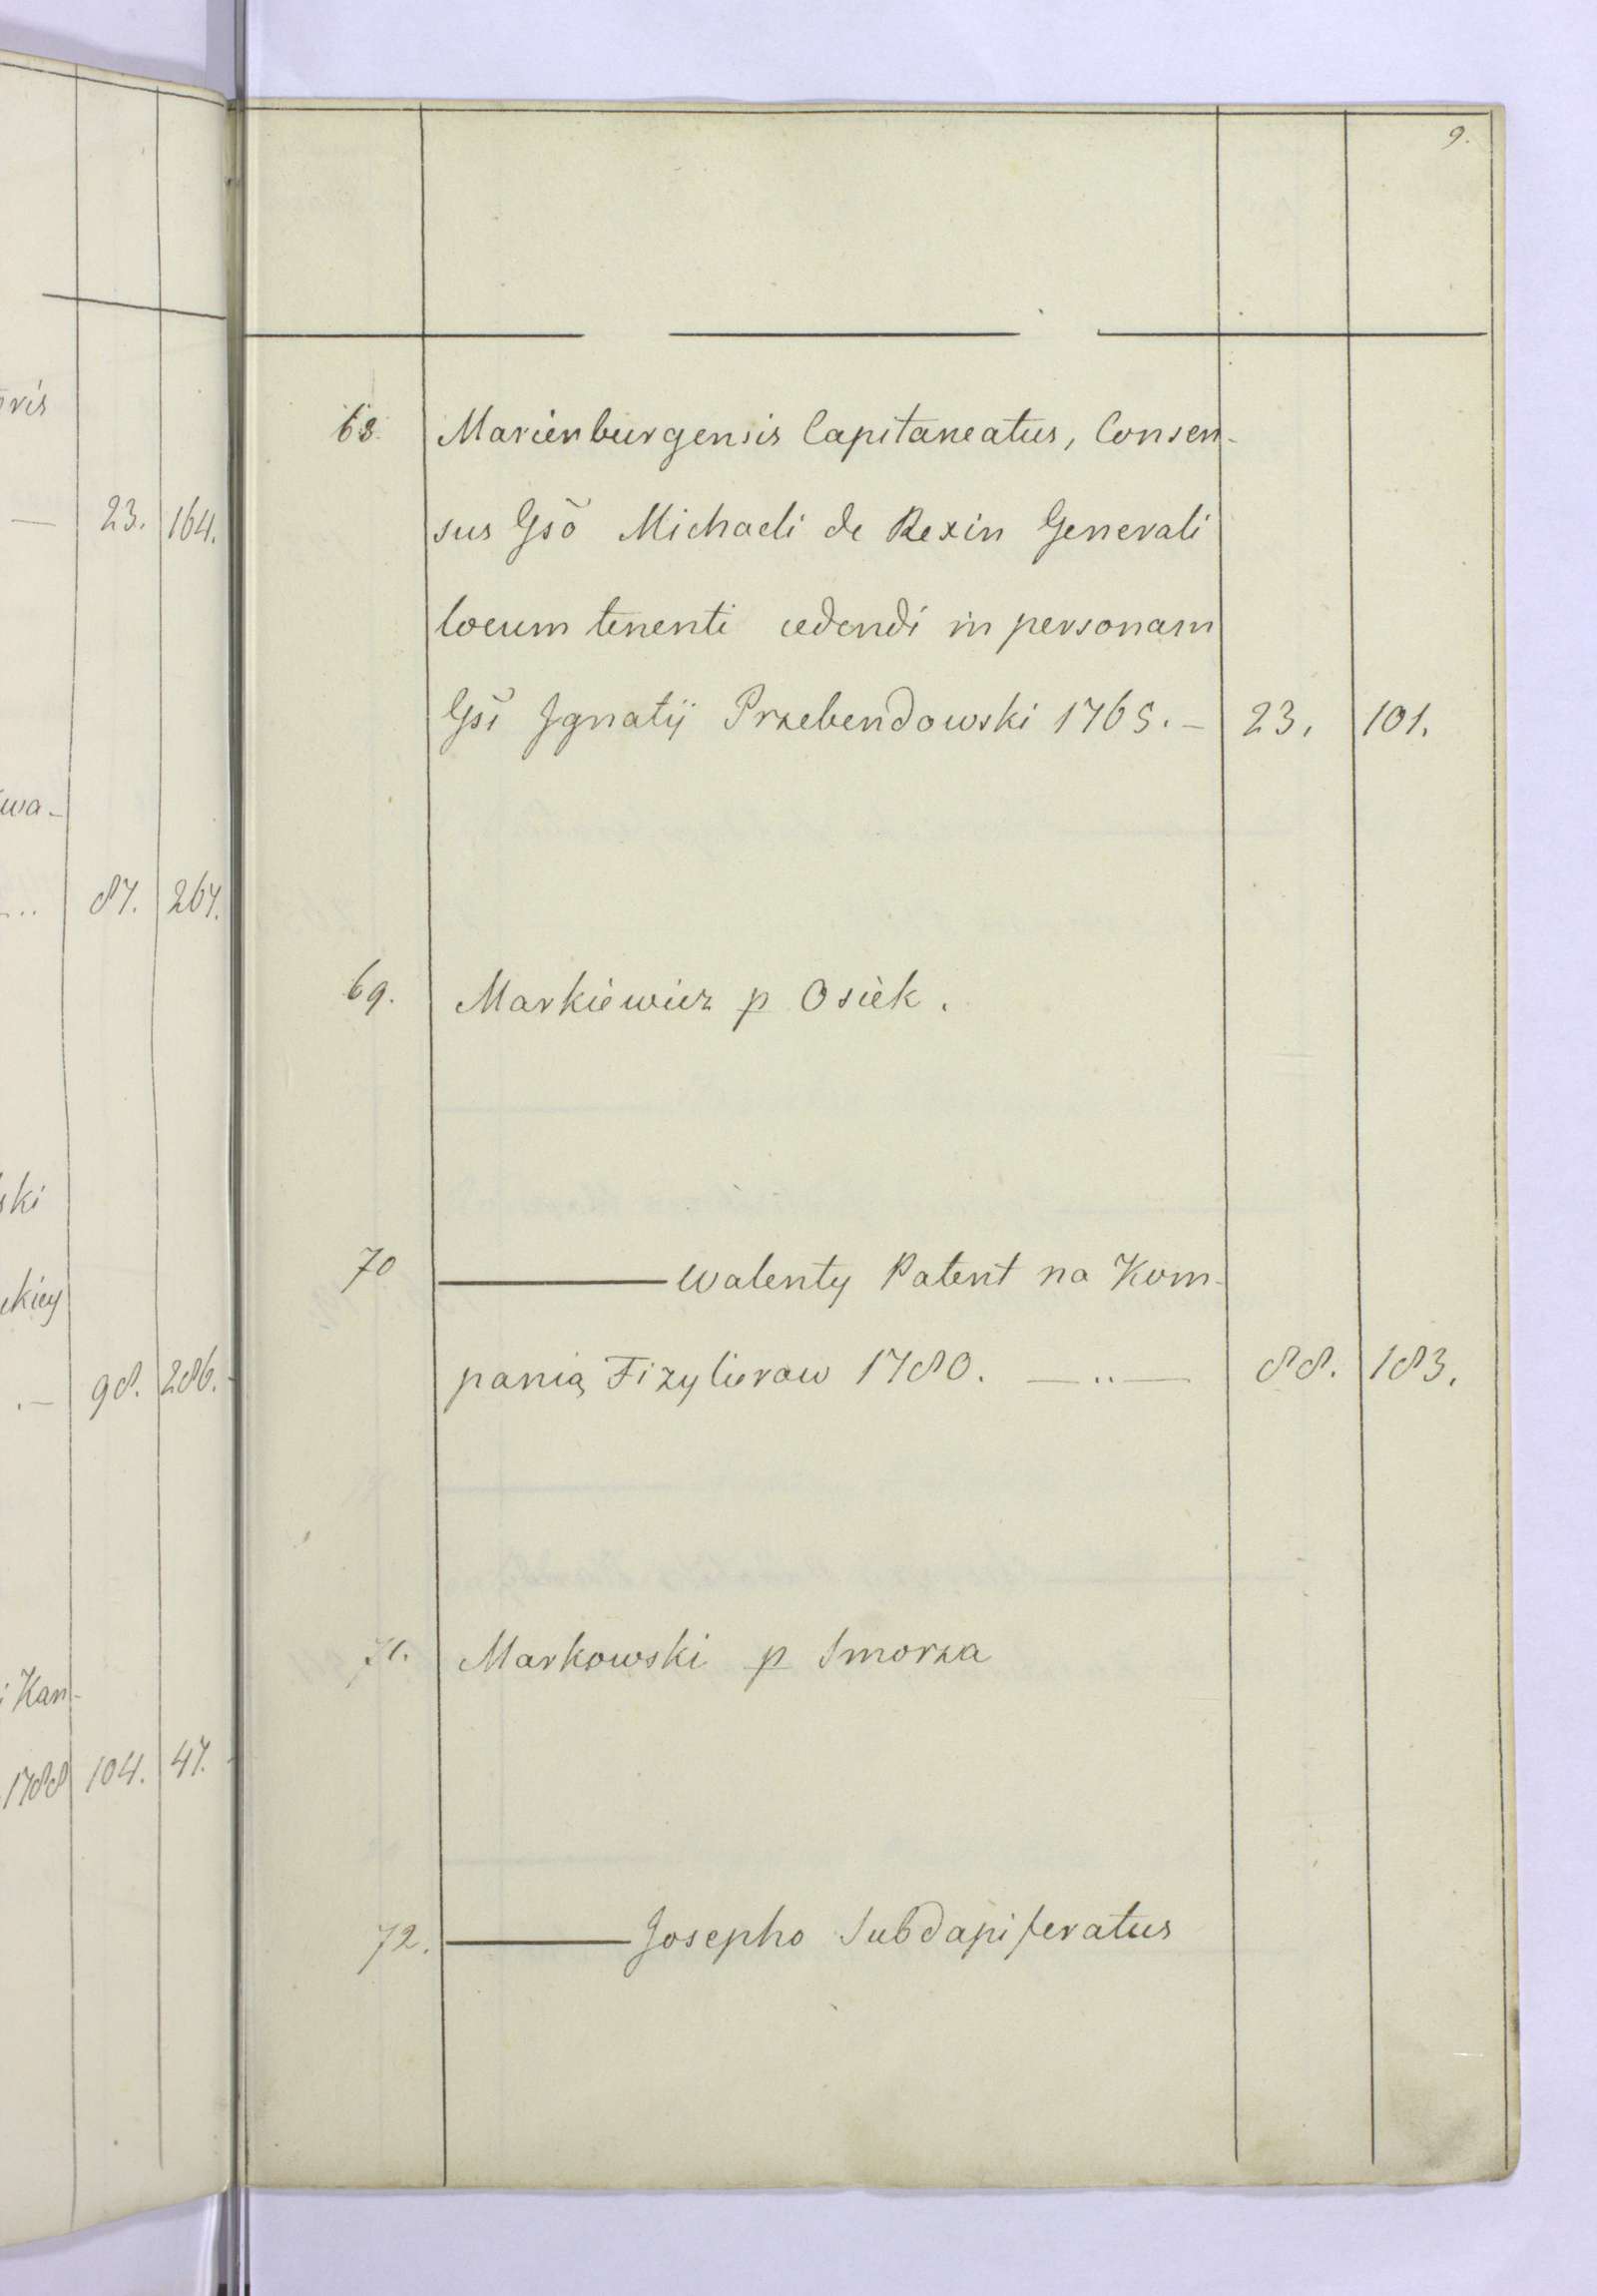 9.
68. Marienburgensis Capitaneatus, Consen-
sus Gsō Michaeli de Rexin Generali
locum tenenti cedendi in personam
Gsī Jgnatij Przebendowski 1765. — 23. 101.
69. Markiewicz p Osiek.
70 ——— Walenty Patent na Kom-
panią Fizylierow 1780. — .. — 88. 183.
71. Markowski p Smorza
72. ——— Josepho Subdapiferatus
— 23. 164.
wa-
87. 267.
ski
ckiey
.— 98. 286.
i Kan-
1788 104. 47.